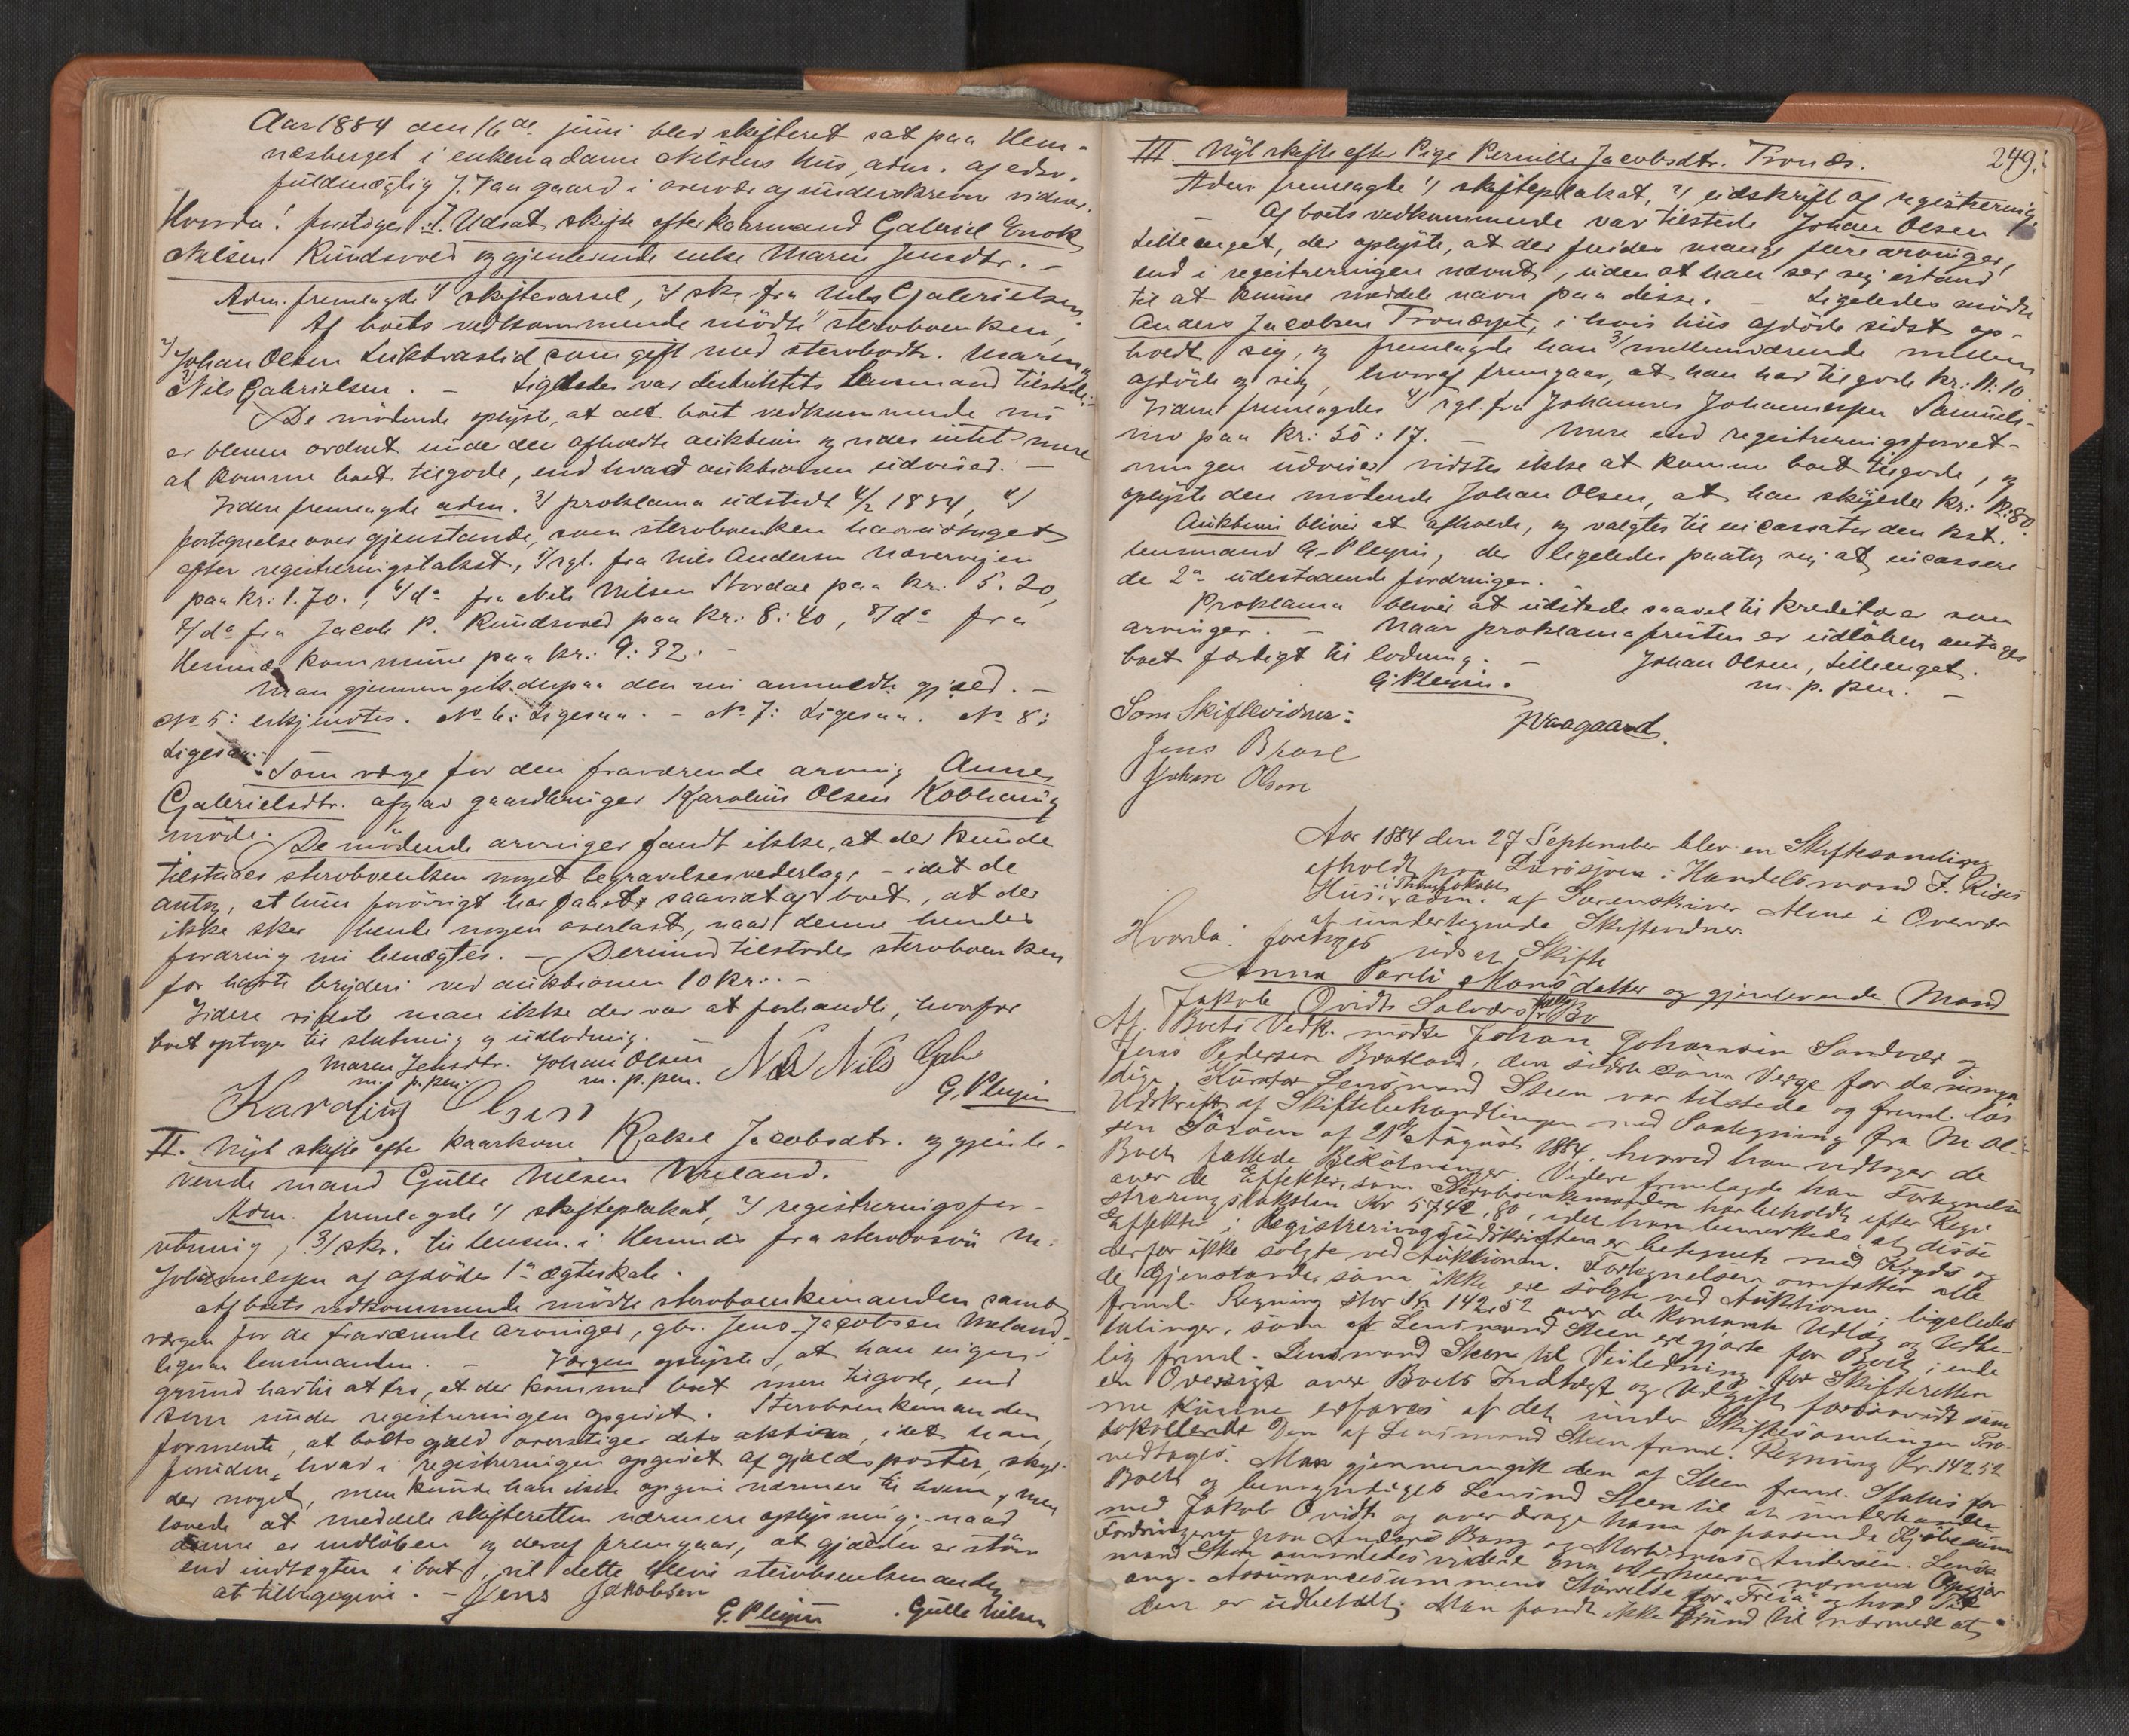 Aar 1884 den 16de juni blev skifteret sat paa Hem-
næsberget i enkemadame Nilsens hus, adm. af edsv.
fuldmægtig J. Vaagaard i overvær af underskrevne vidner.
Hvorda! foretoges: I. Udsat skifte efter kaarmand Gabriel Enok
Nilsen Rundsved og gjenlevende enke Maren Jensdtr. -
Adm. fremlagde 1/ skiftevarsel, 2/ skr. fra Nils Gabrielsen.
Af boets vedkommende mödte 1/ stervboenken,
2/ Johan Olsen Leikbraslid som gift med stervbodtr. Maren,
3/ Nils Gabrielsen. - Ligeledes var distriktets lensmand tilstede. -
De mödende oplyste, at alt boet vedkommende nu
er bleven ordnet under den afholdte auktion og vides intet mere
at komme boet tilgode, end hvad auktionen udviser. -
Videre fremlagde adm. 3/ proklama udstedt 4/2 1884, 4/
fortegnelse over gjenstande, som stervboenken har udtaget
efter registreringstakst, 5/ rgl. fra Nils Andersen Nævernesen
paa kr: 1.70., 6/ do fra Nils Nilsen Stordal paa kr. 5.20,
7/ do fra Jacob P. Rundsved paa kr: 8:40, 8/ do fra
Hemnæs kommune paa kr: 9:32. -
Man gjennemgik derpaa den nu anmeldte gjæld. -
No 5: erkjendtes. No 6: Ligesaa. - No 7: Ligesaa. No 8:
Ligesaa. -
Som værge for den fraværende arving Anne
Gabrielsdtr. afgav gaardbruger Karolius Olsen Kobhaug
möde. De mödende arvinger fandt ikke, at der kunde
tilstaaes stervboenken noget begravelsesvederlag, - idet de
antog, at hun forövrigt har faaet saavidt af boet, at der
ikke sker hende nogen overlast, naar denne hendes
fordring nu benægtes. - Derimod tilstodes stervboenken
for havte bryderi ved auktionen 10 kr: -
Videre vidste man ikke der var at forhandle, hvorfor
boet optoges til slutning og udlodning.
Maren Jensdtr. Johan Olsen Nils Gabr
m. p. pen. m. p. pen. G. Pleym
Karolius Olsen
II. Nyt skifte efter kaarkone Rakel Jacobsdtr. og gjenle-
vende mand Gulle Nilsen Vreland.
Adm. fremlagde 1/ skifteplakat, 2/ registreringsfor-
retning, 3/ skr. til lensm. i Hemnæs fra stervbosön M.
Johannessen af afdödes 1ste ægteskab.
Af boets vedkommende mödte stervboenkemanden samt
værgen for de fraværende arvinger, gbr. Jens Jacobsen Vreland -
ligesaa lensmanden. - Værgen oplyste, at han ingen
grund har til at tro, at der kommer boet mere tilgode, end
som under registreringen opgivet. Stervboenkemanden
formente, at boets gjæld overstiger dets aktiva, idet han,
foruden, hvad i registreringen opgivet af gjældsposter, skyl-
der noget, men kunde han ikke opgive nærmere til hvem, men
lovede at meddele skifteretten nærmere oplysning; naar
denne er indlöben og deraf fremgaar, at gjælden er större
end indtægten i boet, vil dette blive stervboenkemanden
at tilbagegive. - Jens Jakobsen
G. Pleym Gulle Nilsen
249.
III. Nyt skifte efter Pige Pernille Jacobsdtr. Tronæs.
Adm fremlagde 1/ skifteplakat, 2/ udskrift af registrering.
- Af boets vedkommende var tilstede Johan Olsen
Lilleenget, der oplyste, at der findes mange flere arvinger,
end i registreringen nævnt, uden at han ser sig istand
til at kunne meddele navn paa disse. - Ligeledes mödte
Anders Jacobsen Tronæset, i hvis hus afdöde sidst op-
holdt sig, og fremlagde han 3/ mellemværende mellem
afdöde og sig, hvoraf fremgaar, at han har tilgode kr: 11:10.
Videre fremlagdes 4/ rgl. fra Johannes Johannessen Samuels-
mo paa kr: 50:17. - Mere end registreringsforret-
ningen udviser vidstes ikke at komme boet tilgode, og
oplyste den mödende Johan Olsen, at han skylder kr: 12:80.
Auktion bliver at afholde, og valgtes til incassator den kst.
lensmand G. Pleym, der ligeledes paatog sig at incassere
de 2de udestaaende fordringer.
Proklama bliver at udstede saavel til kreditorer som
arvinger. - Naar proklamafristen er udlöben antages
boet færdigt til lodning. - Johan Olsen, Lilleenget.
G. Pleym. m. p. pen. -
Som Skiftevidner: JVaagaard.
Jens Brase
Johan Olsen
Aar 1884 den 27 September blev en Skiftesamling
afholdt paa Dörösjöen i Handelsmand J. Riises
Hus i Thinglokalet adm. af Sorenskriver Alme i Overvær
af undertegnede Skiftevidner.
Hvorda: foretoges udsat Skifte
Anna Pareli Monsdatter og gjenlevende Mand
Jakob Qvidts Solværs fælles Bo
Af Boets Vedk. mödte Johan Johansen Sandvær og
Jens Pedersen Bratland, den sidste som Verge for de umyn
dige. Kurator Lensmand Steen var tilstede og freml. løs
Udskrift af Skiftebehandlingen med Paategning fra M. Ol-
sen Söröen af 21de August 1884, hvorved han vedtager de
Boets fattede Beslutninger. Videre fremlagde han Fortegnelse
over de Effekter, som Stervboenkemanden har beholdt efter Regi
streringstaksten Kr 5742,80, idet han bemærkede, at disse
Effekter i Registreringsudskriften er betegnede med Kryds og
derfor ikke solgte ved Auktionen. Fortegnelsen omfatter alle
de Gjenstande, som ikke ere solgte ved Auktionen; ligeledes
freml. Regning stor Kr 142,52 over de kontante Udlæg og Udbe-
talinger, som af Lensmand Steen ere gjorte for Boet; ende
lig freml. Lensmand Steen til Veiledning for Skifteretten
en Oversigt over Boets Indtægt og Udgift forsaavidt som
nu kunne erfares af det under Skiftesamlingen Pro-
tokollerede Den af Lensmand Steen freml. Regning Kr. 142.52
vedtoges. Man gjennemgik den af Steen freml. Status for
Boet og bemyndiges Lensmd Steen til at underhandle
med Jakob Qvidt og overdrage ham for passende Kjöbesum
Fordringerne paa Anders Bang og Martinus Andersen. Lens
mand Steen anmodedes videre om at erhverve nærmere Opgjør
ang. Assurancesummens Störrelse for "Freia" og hvad Tid
den er udbetalt. Man fandt ikke Grund til nærmere at